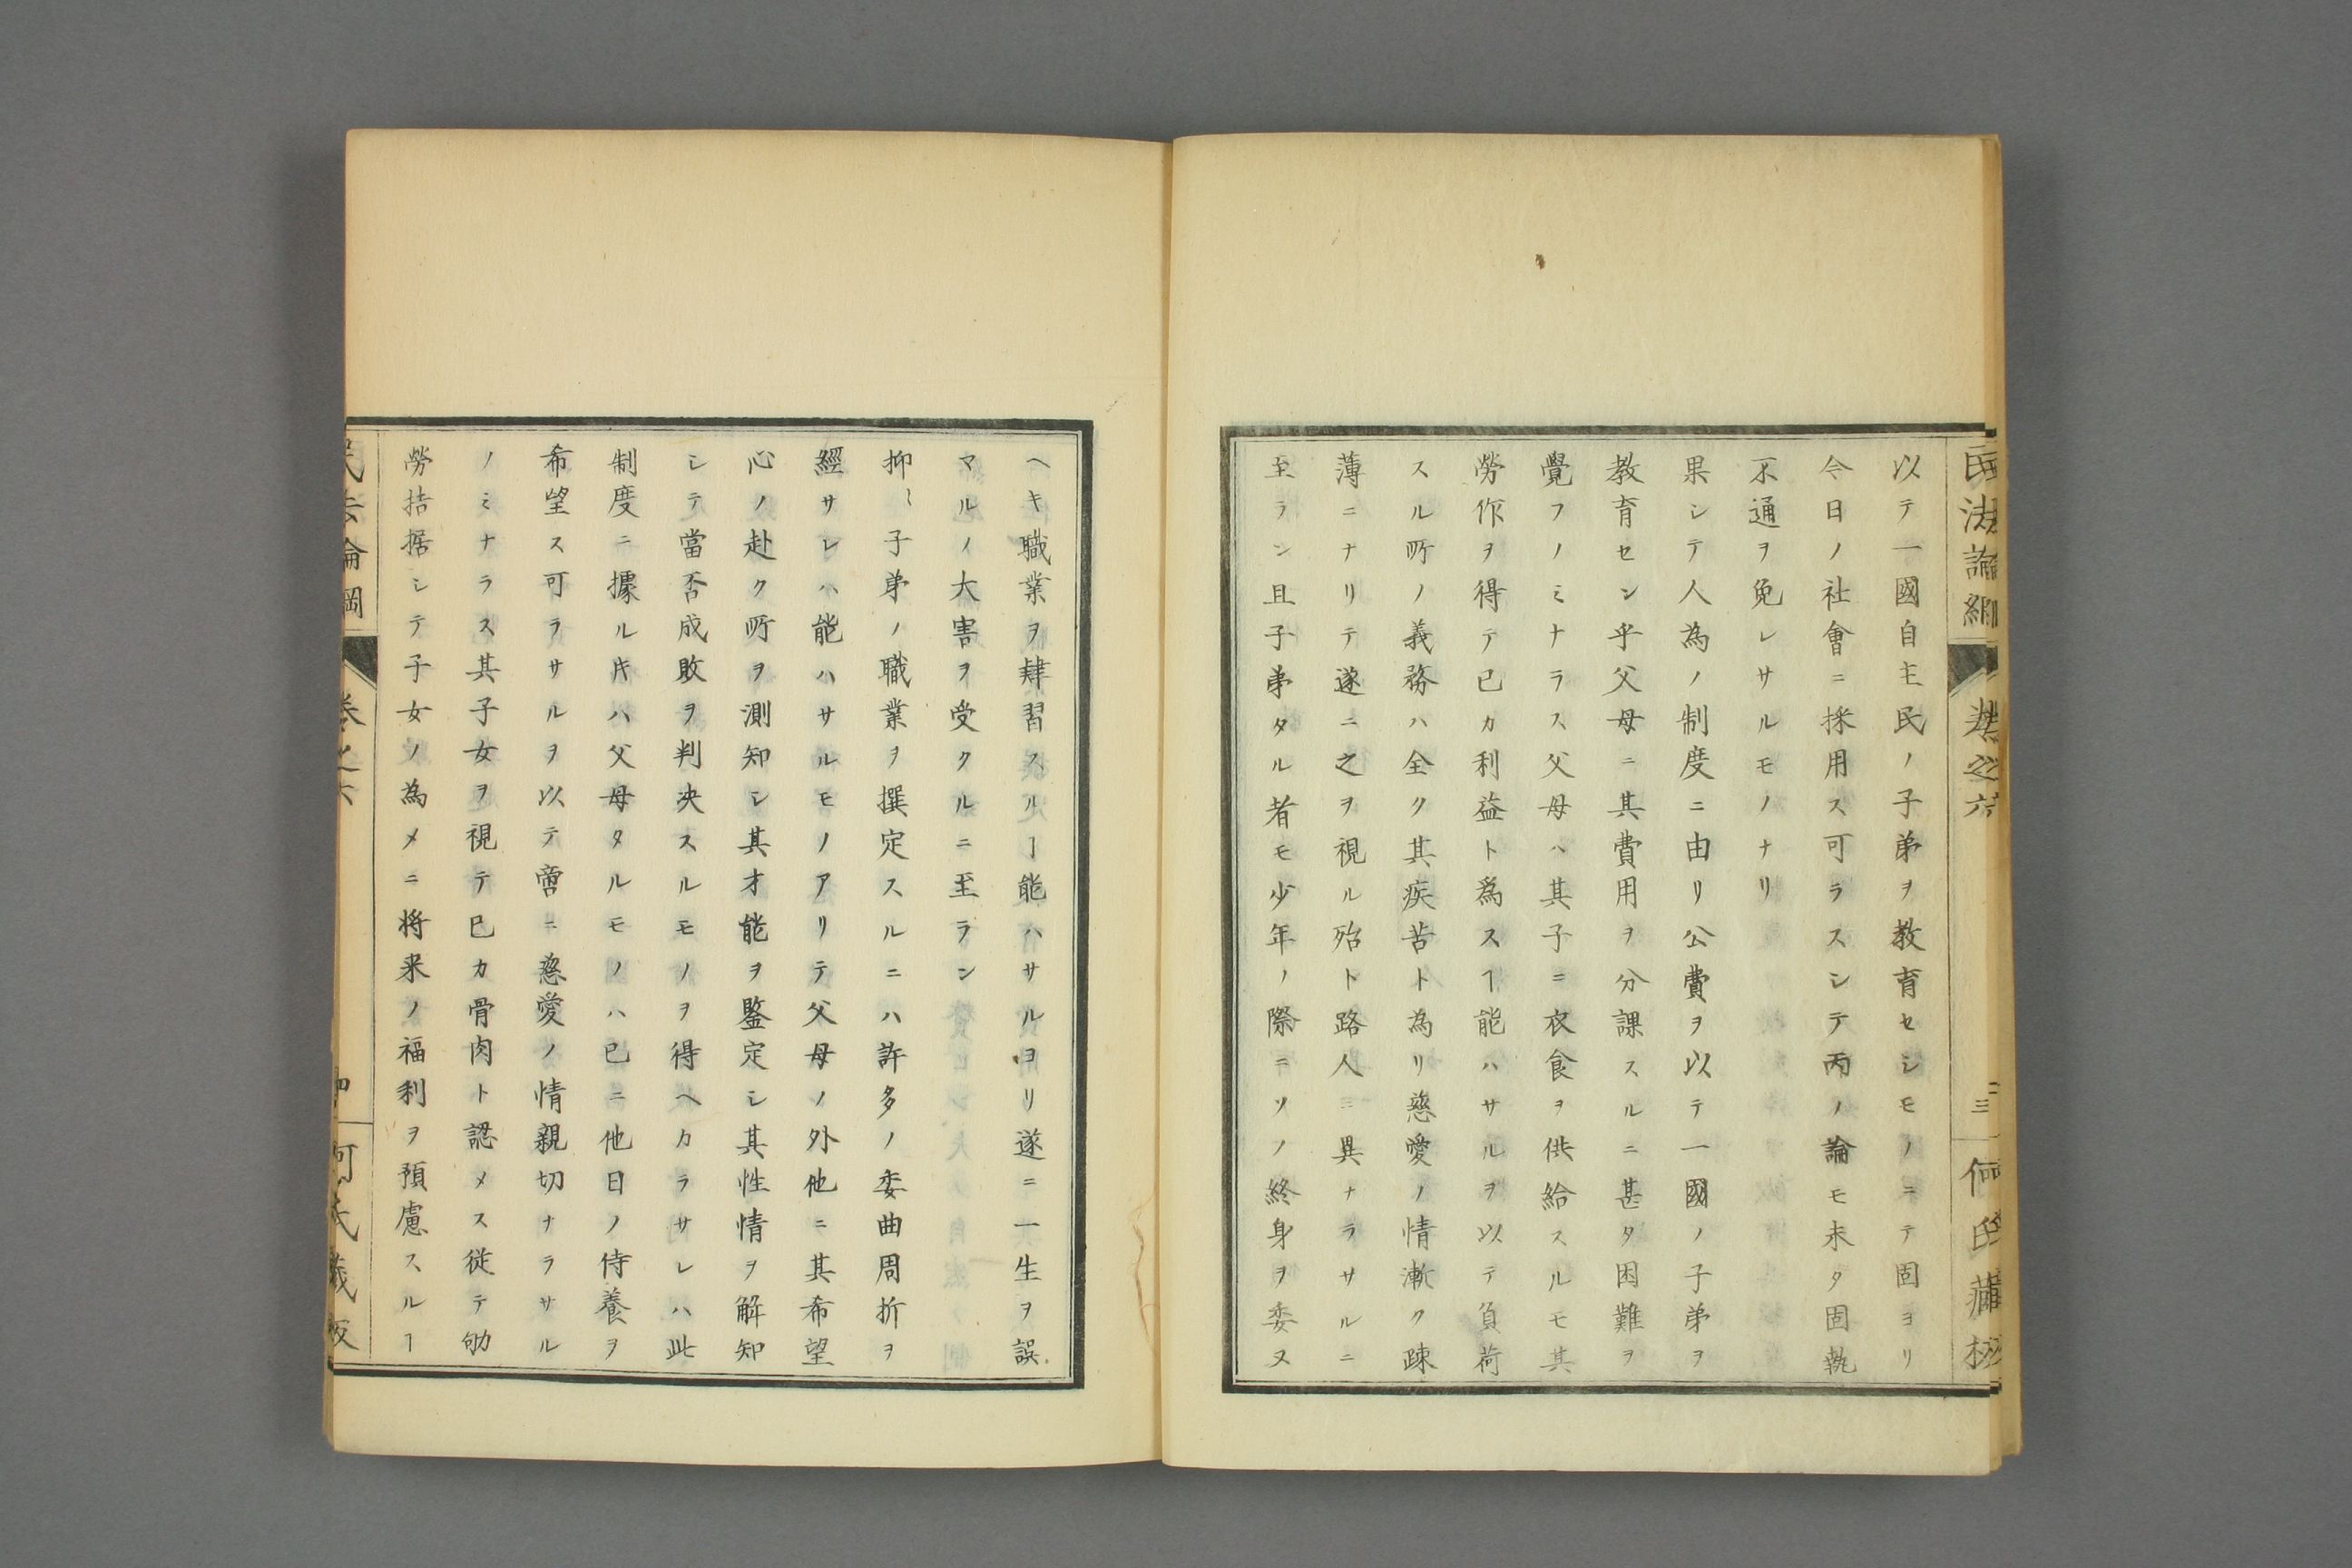 民法論綱
卷之六
三
何氏藏板
以テ一國自主民ノ子弟ヲ教育セシモノニテ固ヨリ
今日ノ社會ニ採用ス可ラスシテ丙ノ論モ未タ固執
不通ヲ免レサルモノナリ
果シテ人為ノ制度ニ由リ公費ヲ以テ一國ノ子弟ヲ
教育セン乎父母ニ其費用ヲ分課スルニ甚タ困難ヲ
覺フノミナラス父母ハ其子ニ衣食ヲ供給スルモ其
勞作ヲ得テ已カ利益ト爲スヿ能ハサルヲ以テ負荷
スル所ノ義務ハ全ク其疾苦ト為リ慈愛ノ情漸ク疎
薄ニナリテ遂ニ之ヲ視ル殆ト路人ニ異ナラサルニ
至ラン且子弟タル者モ少年ノ際ニソノ終身ヲ委ヌ
ヘキ職業ヲ肄習スルヿ能ハサルヨリ遂ニ一生ヲ誤
マルノ大害ヲ受クルニ至ラン
抑〻子弟ノ職業ヲ撰定スルニハ許多ノ委曲周折ヲ
經サレハ能ハサルモノアリテ父母ノ外他ニ其希望
心ノ赴ク所ヲ測知シ其才能ヲ鑒定シ其性情ヲ解知
シテ當否成敗ヲ判决スルモノヲ得ヘカラサレハ此
制度ニ據ル片ハ父母タルモノハ已ニ他日ノ侍養ヲ
希望ス可ラサルヲ以テ啻ニ慈愛ノ情親切ナラサル
ノミナラス其子女ヲ視テ已カ骨肉ト認メス従テ劬
勞拮据シテ子女ノ為メニ将来ノ福利ヲ預慮スルヿ
民法論綱
卷之六
何氏藏板